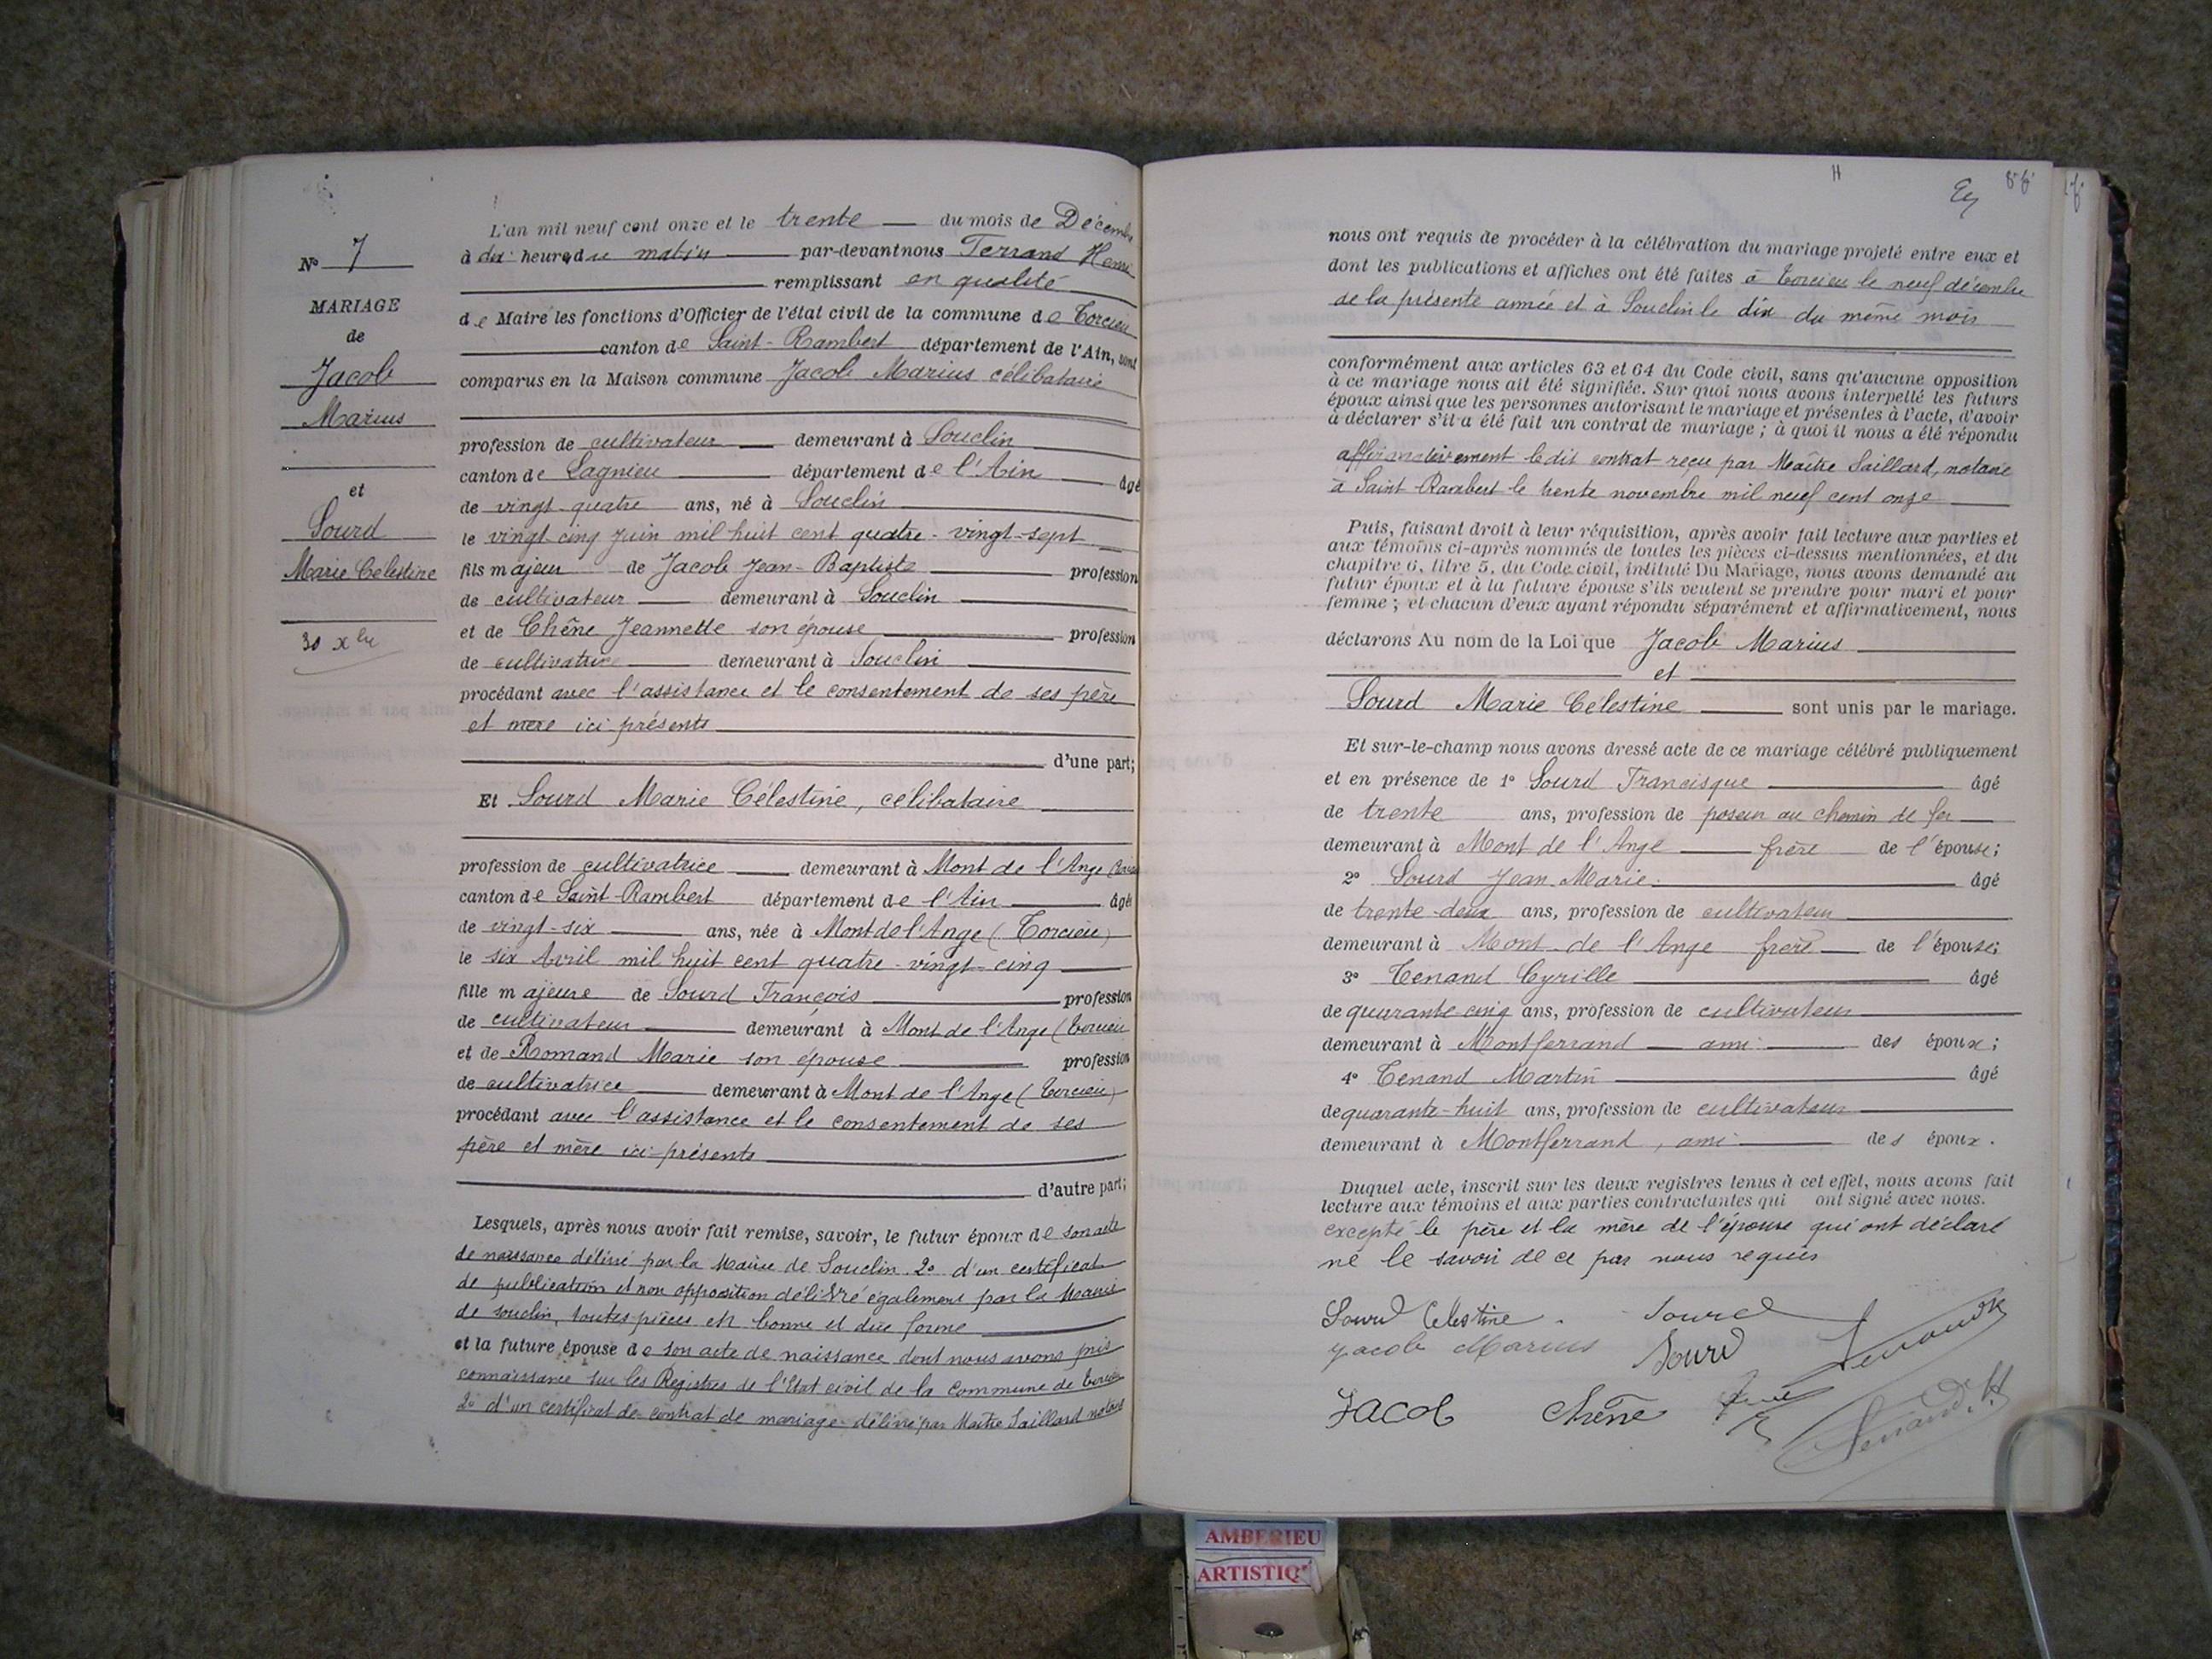 N° 7
MARIAGE
de
Jacob
Marius
et
Sourd
Marie Célestine
30 xbre
L'an mil neuf cent onze et le trente du mois de Décembre
à dix heures du matin par-devant nous Ferrand Henri
remplissant en qualité
de Maire les fonctions d'Officier de l'état civil de la commune de Torcieu
canton de Saint-Rambert département de l'Ain, sont
comparus en la Maison commune Jacob Marius célibataire
profession de cultivateur demeurant à Souclin
canton de Lagnieu département de l'Ain âgé
de vingt-quatre ans, né à Souclin
le vingt cinq juin mil huit cent quatre-vingt-sept
fils majeur de Jacob Jean-Baptiste profession
de cultivateur demeurant à Souclin
et de Chêne Jeannette son épouse profession
de cultivatrice demeurant à Souclin
procédant avec l'assistance et le consentement de ses père
et mère ici présents
d'une part;
Et Sourd Marie Célestine, celibataire
profession de cultivatrice demeurant à Mont de l'Ange
canton de Saint-Rambert département de l'Ain âgé
de vingt-six ans, née à Mont de l'Ange (Torcieu)
le six Avril mil huit cent quatre-vingt-cinq
fille majeure de Sourd François profession
de cultivateur demeurant à Mont de l'Ange (Torcieu
et de Romand Marie son épouse profession
de cultivatrice demeurant à Mont de l'Ange (Torcieu)
procédant avec l'assistance et le consentement de ses
père et mère ici présents
d'autre part;
Lesquels, après nous avoir fait remise, savoir, le futur époux de son acte
de naissance délivré par la Mairie de Souclin 2° d'un certificat
de publication et non opposition délivré également par la Mairie
de souclin, toutes pièces en bonne et due forme
et la future épouse de son acte de naissance dont nous avons pris
connaissance sur les Registres de l'Etat civil de la commune de Torcieu
2° d'un certificat de contrat de mariage délivré par Maître Saillard notaire
nous ont requis de procéder à la célébration du mariage projeté entre eux et
dont les publications et affiches ont été faites à Torcieu le neuf décembre
de la présente année et à Souclin le dix du même mois
conformément aux articles 63 et 64 du Code civil, sans qu'aucune opposition
à ce mariage nous ait été signifiée. Sur quoi nous avons interpellé les futurs
époux ainsi que les personnes autorisant le mariage et présentes à l'acte, d'avoir
à déclarer s'il a été fait un contrat de mariage; à quoi il nous a été répondu
affirmativement ledit contrat reçu par Maître Saillard, notaire
à Saint-Rambert le trente novembre mil neuf cent onze
Puis, faisant droit à leur réquisition, après avoir fait lecture aux parties et
aux témoins ci-après nommés de toutes les pièces ci-dessus mentionnées, et du
chapitre 6, titre 5, du Code civil, intitulé Du Mariage, nous avons demandé au
futur époux et à la future épouse s'ils veulent se prendre pour mari et pour
femme; et chacun d'eux ayant répondu séparément et affirmativement, nous
déclarons Au nom de la Loi que Jacob Marius
et
Sourd Marie Célestine sont unis par le mariage.
Et sur-le-champ nous avons dressé acte de ce mariage célébré publiquement
et en présence de 1° Sourd Francisque âgé
de trente ans, profession de poseur au chemin de fer
demeurant à Mont de l'Ange frère de l'épouse;
2° Sourd Jean-Marie âgé
de trente-deux ans, profession de cultivateur
demeurant à Mont-de l'Ange frère de l'épouse;
3° Tenand Cyrille âgé
de quarante-cinq ans, profession de cultivateur
demeurant à Montferrand ami des époux;
4° Tenand Martin âgé
de quarante-huit ans, profession de cultivateur
demeurant à Montferrand, ami des époux.
Duquel acte, inscrit sur les deux registres tenus à cet effet, nous avons fait
lecture aux témoins et aux parties contractantes qui ont signé avec nous.
excepté le père et la mère de l'épouse qui ont déclaré
ne le savoir de ce par nous requis
Sourd Celestine Sourd
Jacob Marius Sourd
Jacob Chêne
AMBERIEU
ARTISTIQ